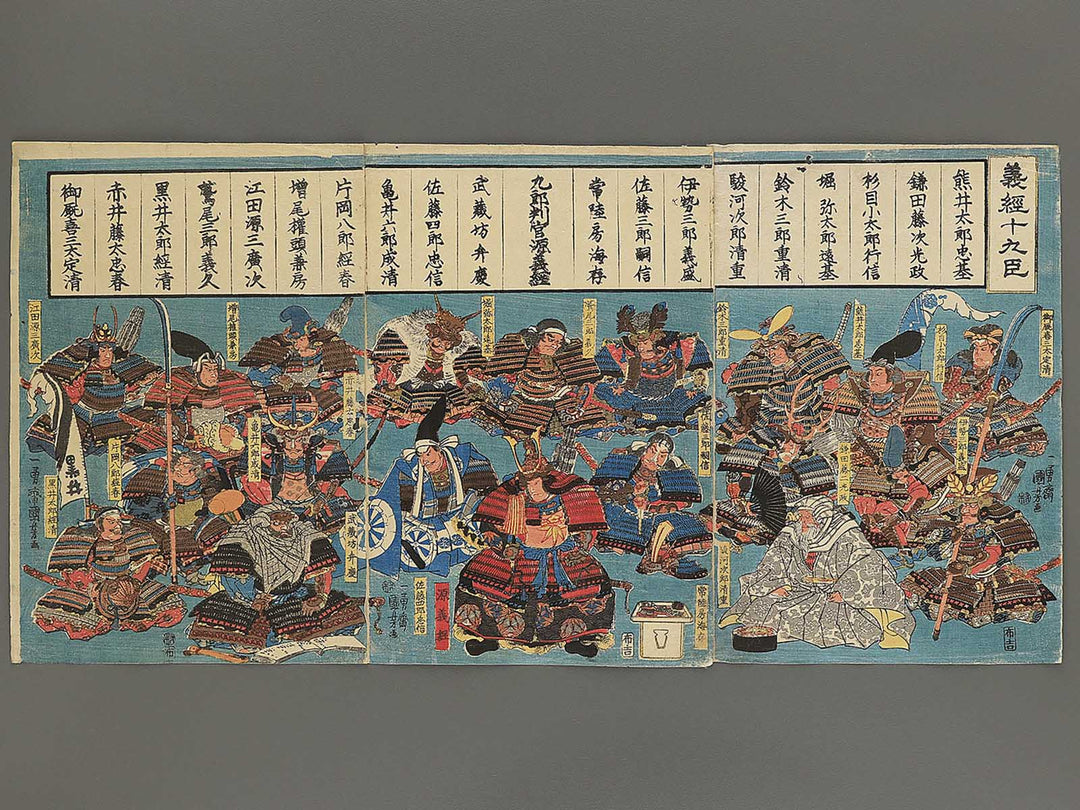 義經十九臣
熊井太郎忠基
鎌田藤次光政
杉目小太郎行信
堀弥太郎遠基
鈴木三郎重清
駿河次郎清重
伊勢三郎義盛
佐藤三郎嗣信
常陸房海存
九郎判官源義經
武蔵坊弁慶
佐藤四郎忠信
亀井六郎成清
片岡八郎經春
増尾權頭兼房
江田源三廣次
鷲尾三郎義久
黒井太郎經清
赤井藤太忠春
御厩喜三太定清
鈴木三郎重清
一勇齋國芳画
布吉
佐藤四郎忠信
源義經
一勇齋國芳画
布吉
江田源三廣次
増尾權頭兼房
亀井六郎成清
片岡八郎經春
黒井太郎經清
一勇齋國芳画